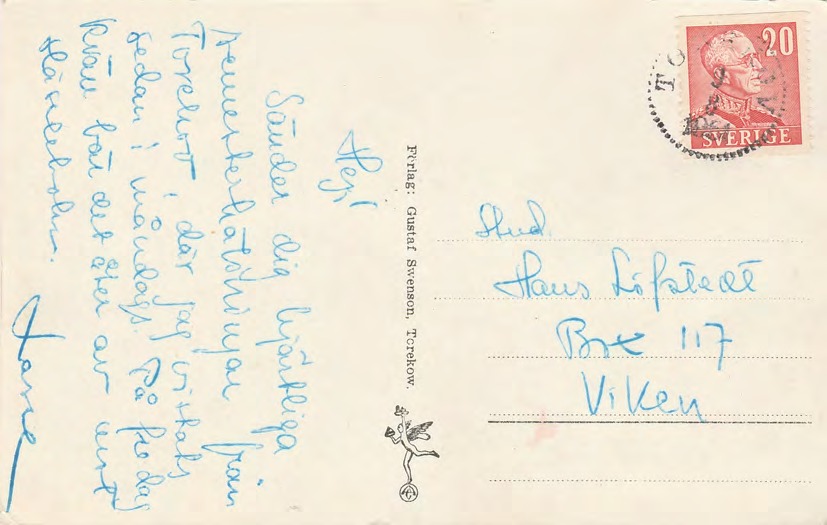 Hej!
Sänder dig hjärtliga
semesterhälsningar från
Torekov, där jag vistats
sedan i måndags. På fredag
kväll bär det åter av mot
Hässleholm.
Lasse
Förlag: Gustaf Swenson, Torekow.
20
SVERIGE
TO
Stud.
Hans Löfstedt
Box 117
Viken